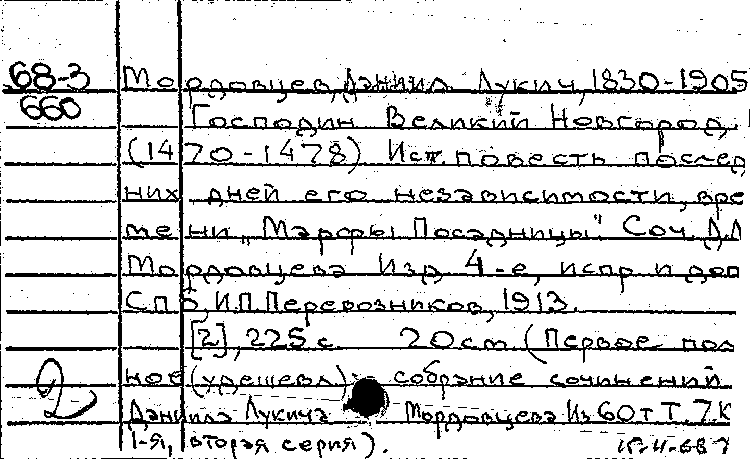 68-3
660
Мордовцев, Даниил Лукич, 1830-1905
Господин Великий Новгород.
(1470-1478) Ист. повесть послед
них дней его независимости, вре
мени „Марфы Посадницы" Соч. Д.Л
Мордовцева Изд 4-е, испр и доп
СПб, И.П. Перевозников, 1913.
[2], 225 с. 20 см (Первое пол
ное (удешевл) собрание сочинений
Даниила Лукича Мордовцева Из 60 т Т. 7. К
1-я, вторая серия).
2